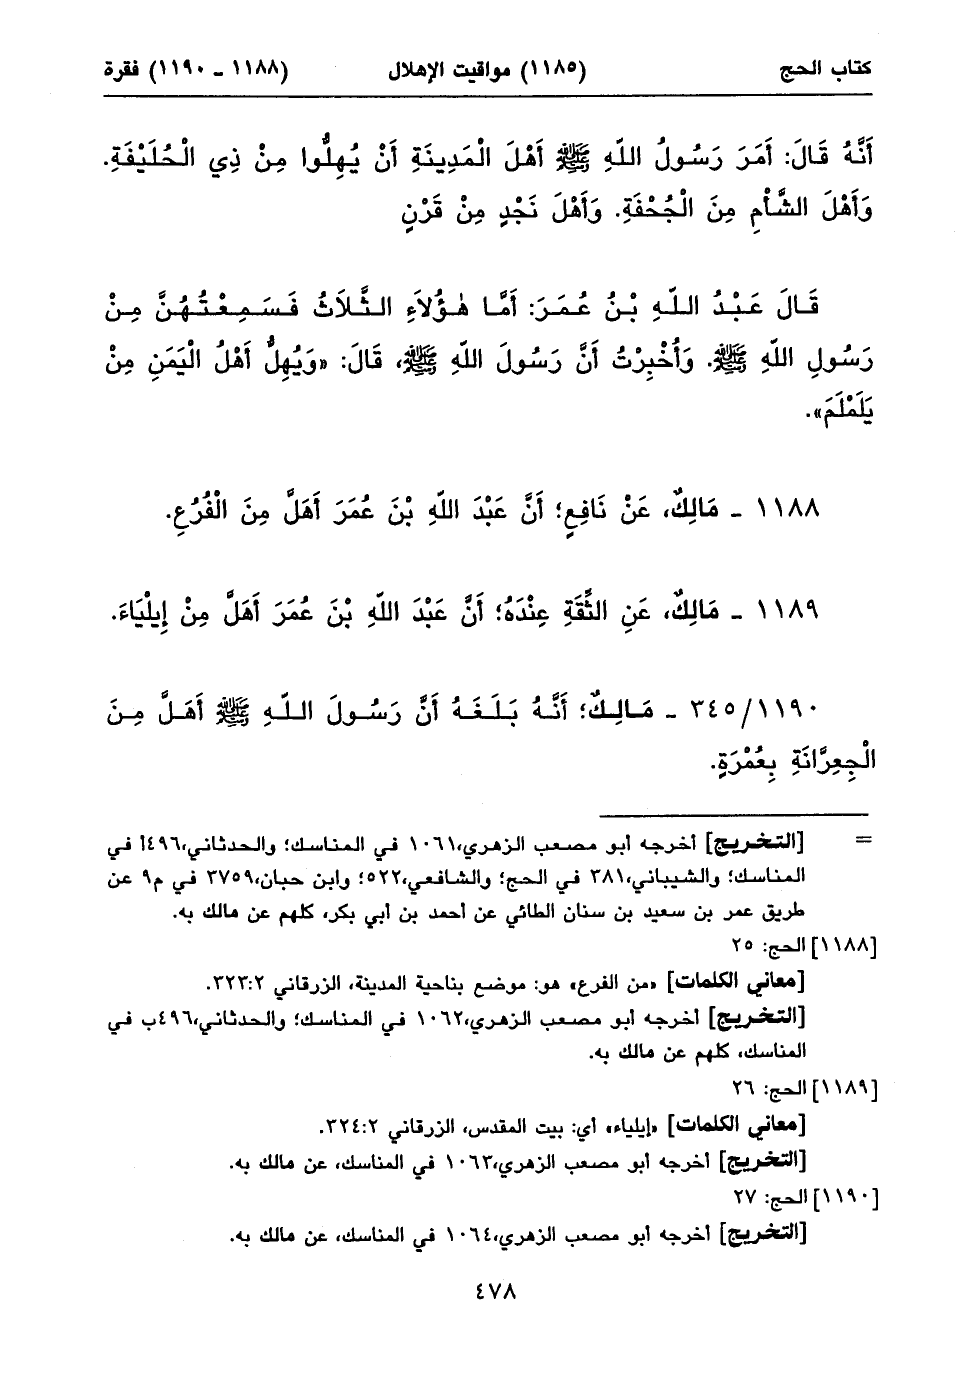 كتاب الحج (١١٨٥) مواقيت الإهلال (١١٨٨ - ١١٩٠) فقرة
أَنَّهُ قَالَ: أَمَرَ رَسُولُ اللّهِ ﷺ أَهْلَ الْمَدِينَةِ أَنْ يُهِلُّوا مِنْ ذِي الْحُلَيْفَةِ.
وَأَهْلَ الشَّأْمِ مِنَ الْجُحْفَةِ. وَأَهْلَ نَجْدٍ مِنْ قَرْنٍ
قَالَ عَبْدُ اللّهِ بْنُ عُمَرَ: أَمَّا هٰؤُلاَءِ الثَّلاَثُ فَسَمِعْتُهُنَّ مِنْ
رَسُولِ اللّهِ ﷺ. وَأُخْبِرْتُ أَنَّ رَسُولَ اللّهِ ﷺ، قَالَ: «وَيُهِلُّ أَهْلُ الْيَمَنِ مِنْ
يَلَمْلَمَ».
١١٨٨ - مَالِكٌ، عَنْ نَافِعٍ؛ أَنَّ عَبْدَ اللّهِ بْنَ عُمَرَ أَهَلَّ مِنَ الْفُرُعِ.
١١٨٩ - مَالِكٌ، عَنِ الثِّقَةِ عِنْدَهُ؛ أَنَّ عَبْدَ اللّهِ بْنَ عُمَرَ أَهَلَّ مِنْ إِيلْيَاءَ.
٣٤٥/١١٩٠ - مَالِكٌ؛ أَنَّهُ بَلَغَهُ أَنَّ رَسُولَ اللّهِ ﷺ أَهَلَّ مِنَ
الْجِعِرَّانَةِ بِعُمْرَةٍ.
= [التخريج] أخرجه أبو مصعب الزهري،١٠٦١ في المناسك؛ والحدثاني،٤٩٦أ في
المناسك؛ والشيباني،٣٨١ في الحج؛ والشافعي،٥٢٢؛ وابن حبان،٣٧٥٩ في م٩ عن
طريق عمر بن سعيد بن سنان الطائي عن أحمد بن أبي بكر، كلهم عن مالك به.
[١١٨٨] الحج: ٢٥
[معاني الكلمات] «من الفرع» هو: موضع بناحية المدينة، الزرقاني ٣٢٣:٢.
[التخريج] أخرجه أبو مصعب الزهري،١٠٦٢ في المناسك؛ والحدثاني،٤٩٦ب في
المناسك، كلهم عن مالك به.
[١١٨٩] الحج: ٢٦
[معاني الكلمات] «إيلياء» أي: بيت المقدس، الزرقاني ٣٢٤:٢.
[التخريج] أخرجه أبو مصعب الزهري،١٠٦٣ في المناسك، عن مالك به.
[١١٩٠] الحج: ٢٧
[التخريج] أخرجه أبو مصعب الزهري،١٠٦٤ في المناسك، عن مالك به.
٤٧٨